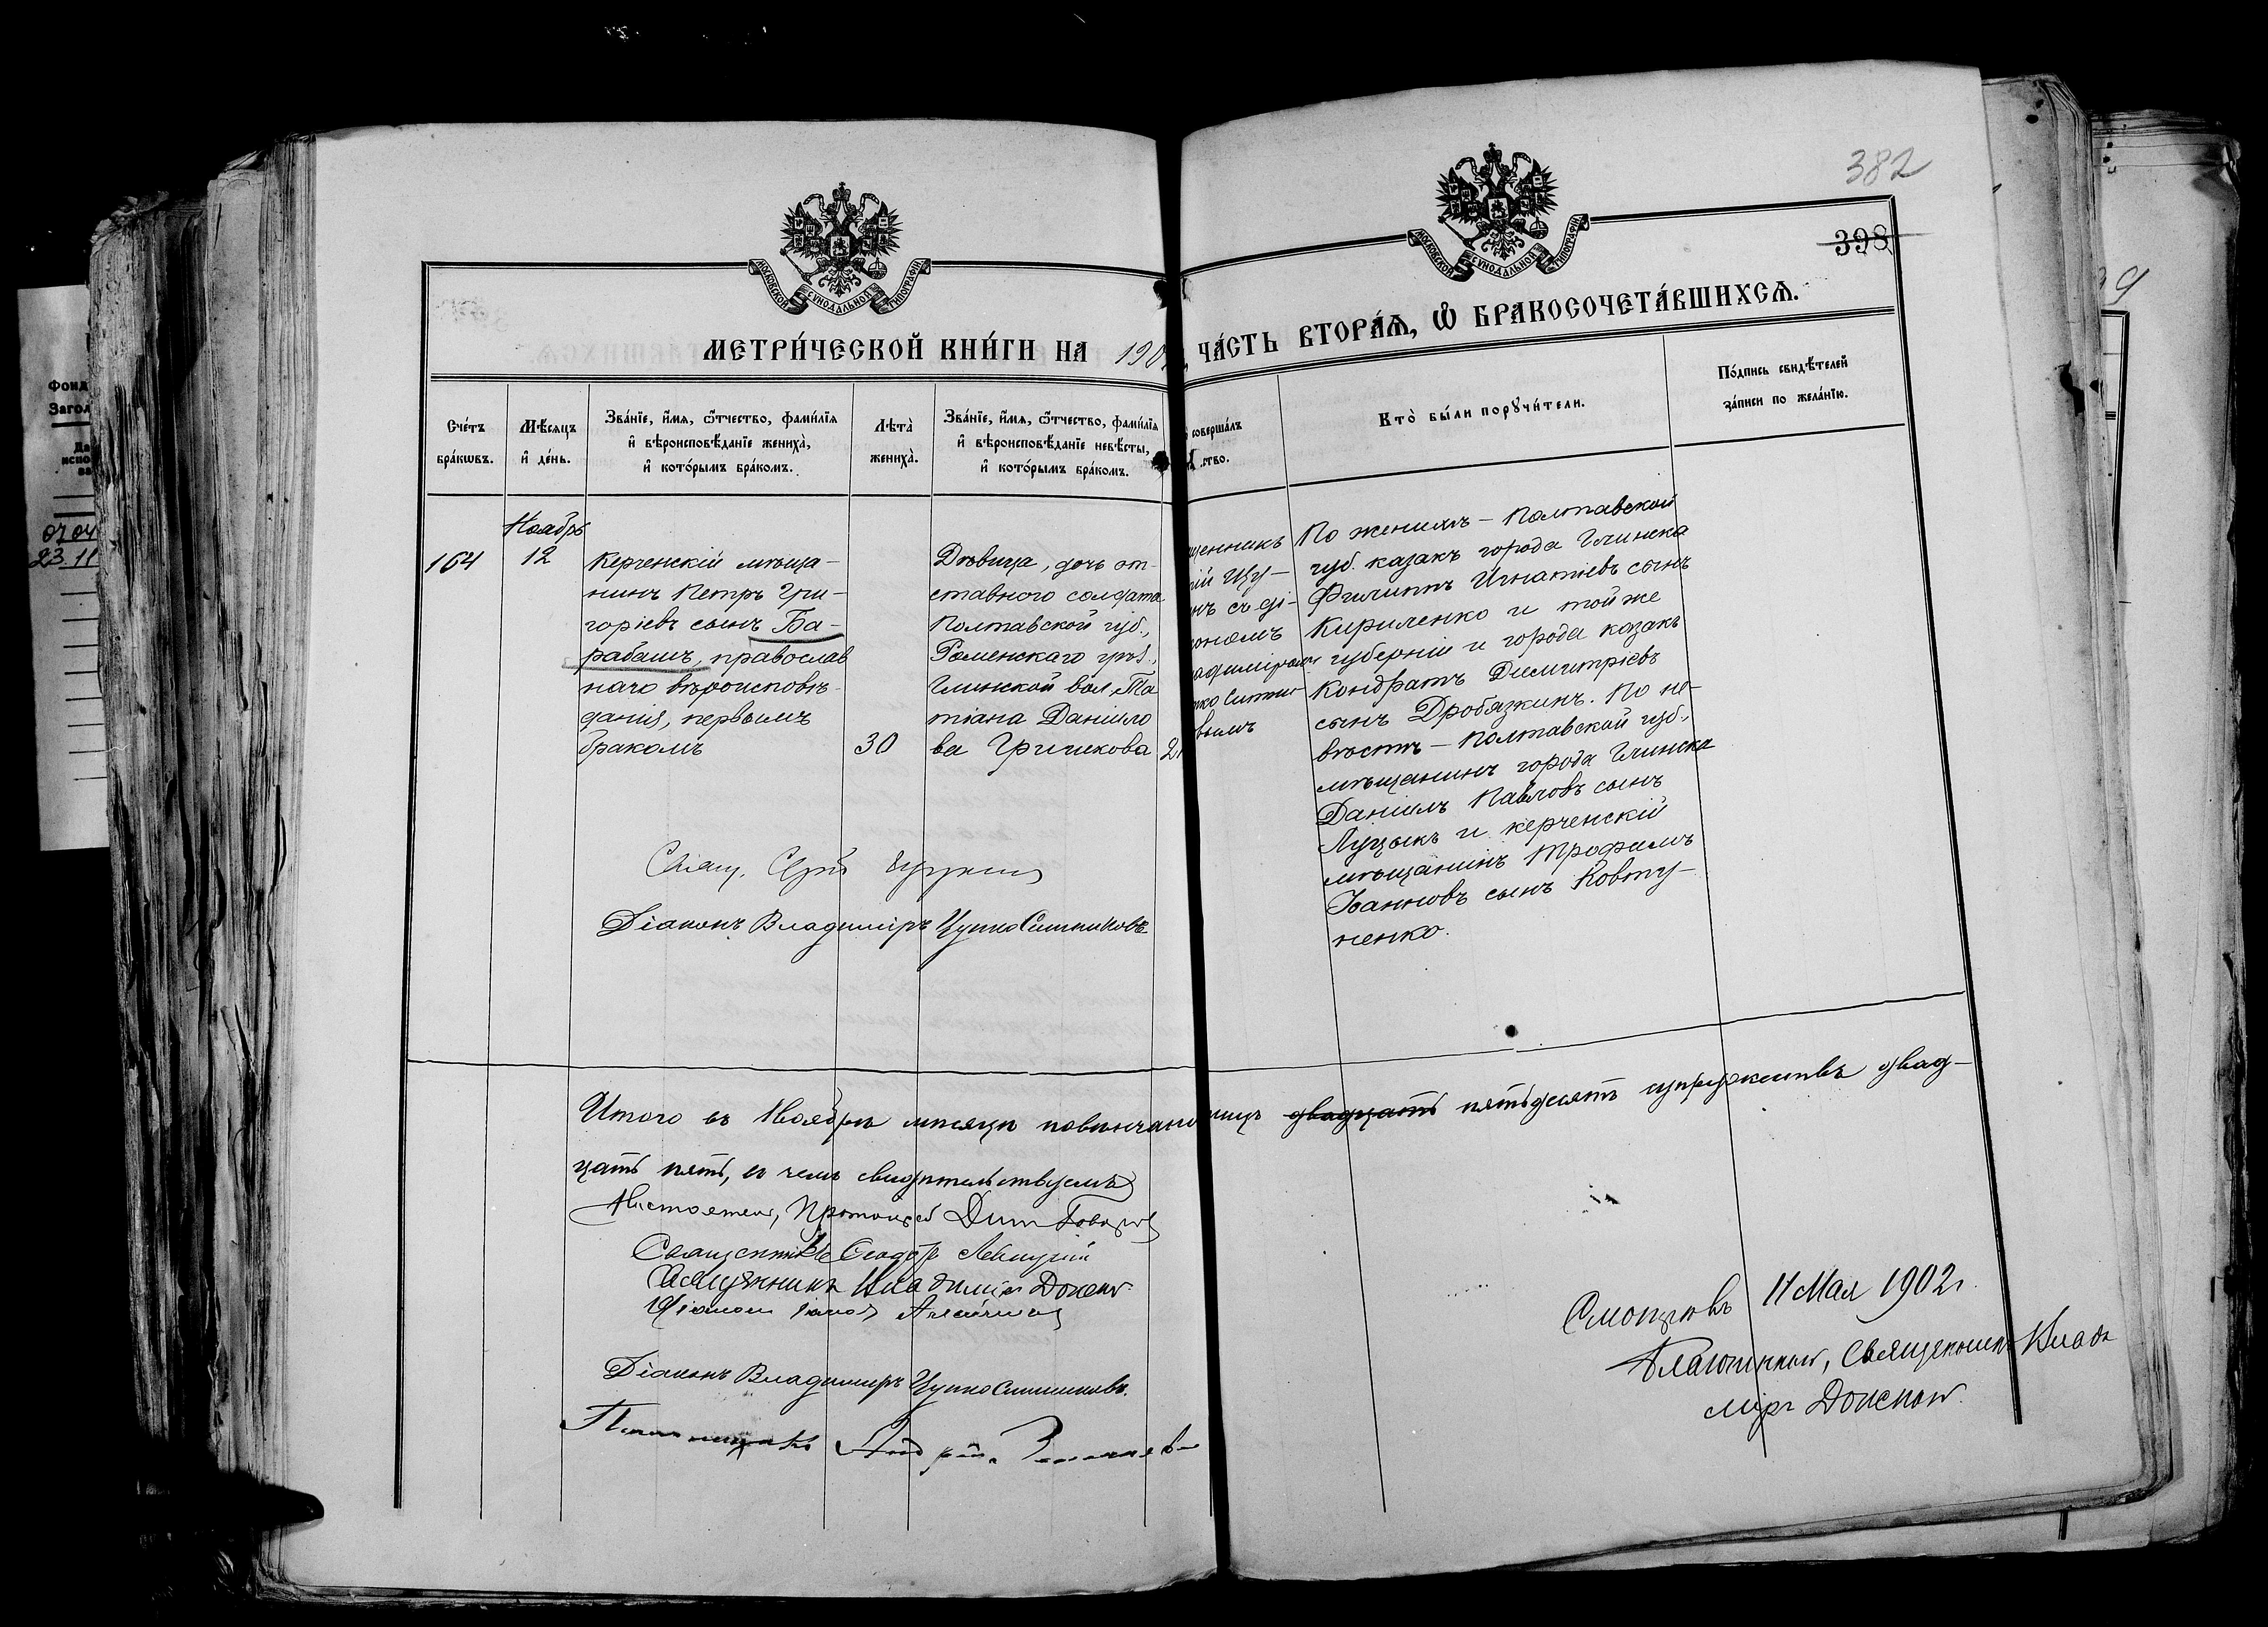 382
398
МОСКОВСКОЙ СУНОДАЛЬНОЙ ТИПОГРАФІИ
МОСКОВСКОЙ СУНОДАЛЬНОЙ ТИПОГРАФІИ
МЕТРИ́ЧЕСКОЙ КНИ́ГИ НА 190
ЧА́СТЬ ВТОРА́Ѧ, Ѽ БРАКОСОЧЕТА́ВШИХСѦ.
Сче́тъ бра́кѡвъ.
Мѣ́сяцъ и҆ де́нь.
Зва́нїе, и҆́мѧ, ѻ҆́тчество, фами́лїѧ и҆ вѣроисповѣ́данїе жениха̀, и҆ кото́рымъ бра́комъ.
Лѣта̀ жениха̀.
Зва́нїе, и҆́мѧ, ѻ҆́тчество, фами́лїѧ и҆ вѣроисповѣ́данїе невѣ́сты, и҆ кото́рымъ бра́комъ.
соверша́лъ
ство.
Кто̀ бы́ли порꙋчи́тели.
По́дпись свидѣ́телей за́писи по жела́нїю.
Ноябрь
164
12
Керченскій мѣща-
нинъ Петръ Гри-
горіевъ сынъ Ба-
рабашъ, православ
наго вѣроисповѣ-
данія, первымъ
бракомъ
30
Дѣвица, дочь от-
ставного солдата
Полтавской губ.,
Роменскаго уѣз.,
Глинской вол. Та
тіана Даніило
ва Гричкова
2
щенникъ
ій Цу-
нъ съ ді-
кономъ
адиміромъ
пко Ситни-
вымъ
По женихѣ – Полтавской
губ. казакъ города Глинска
Филиппъ Игнатіевъ сынъ
Кириленко и той же
губерніи и города казакъ
Кондратъ Димитріевъ
сынъ Дробязкинъ. По не-
вѣстѣ – Полтавской губ.,
мѣщанинъ города Глинска
Даніилъ Павловъ сынъ
Луцыкъ и керченскій
мѣщанинъ Трофимъ
Іоанновъ сынъ Ковту-
ненко.
Свящ.
Діаконъ Владиміръ Цупко Ситниковъ
Итого въ Ноябрѣ мѣсяцѣ повѣнчано лицъ двадцать пятьдесятъ супружествъ двад-
цать пять, въ чемъ свидѣтельствуемъ
Настоятель, Протоіерей Дим.
Священникъ Ѳеодоръ Левицкій
Священникъ Владиміръ Донской
Діаконъ
Діаконъ Владиміръ Цупко Ситниковъ.
Псаломщикъ Андрей
Смотрѣлъ 11 Мая 1902 г.
Благочинный, Священникъ Влади
міръ Донской.
Фонд
Загол
Да
испо
ва
07 04
23 11